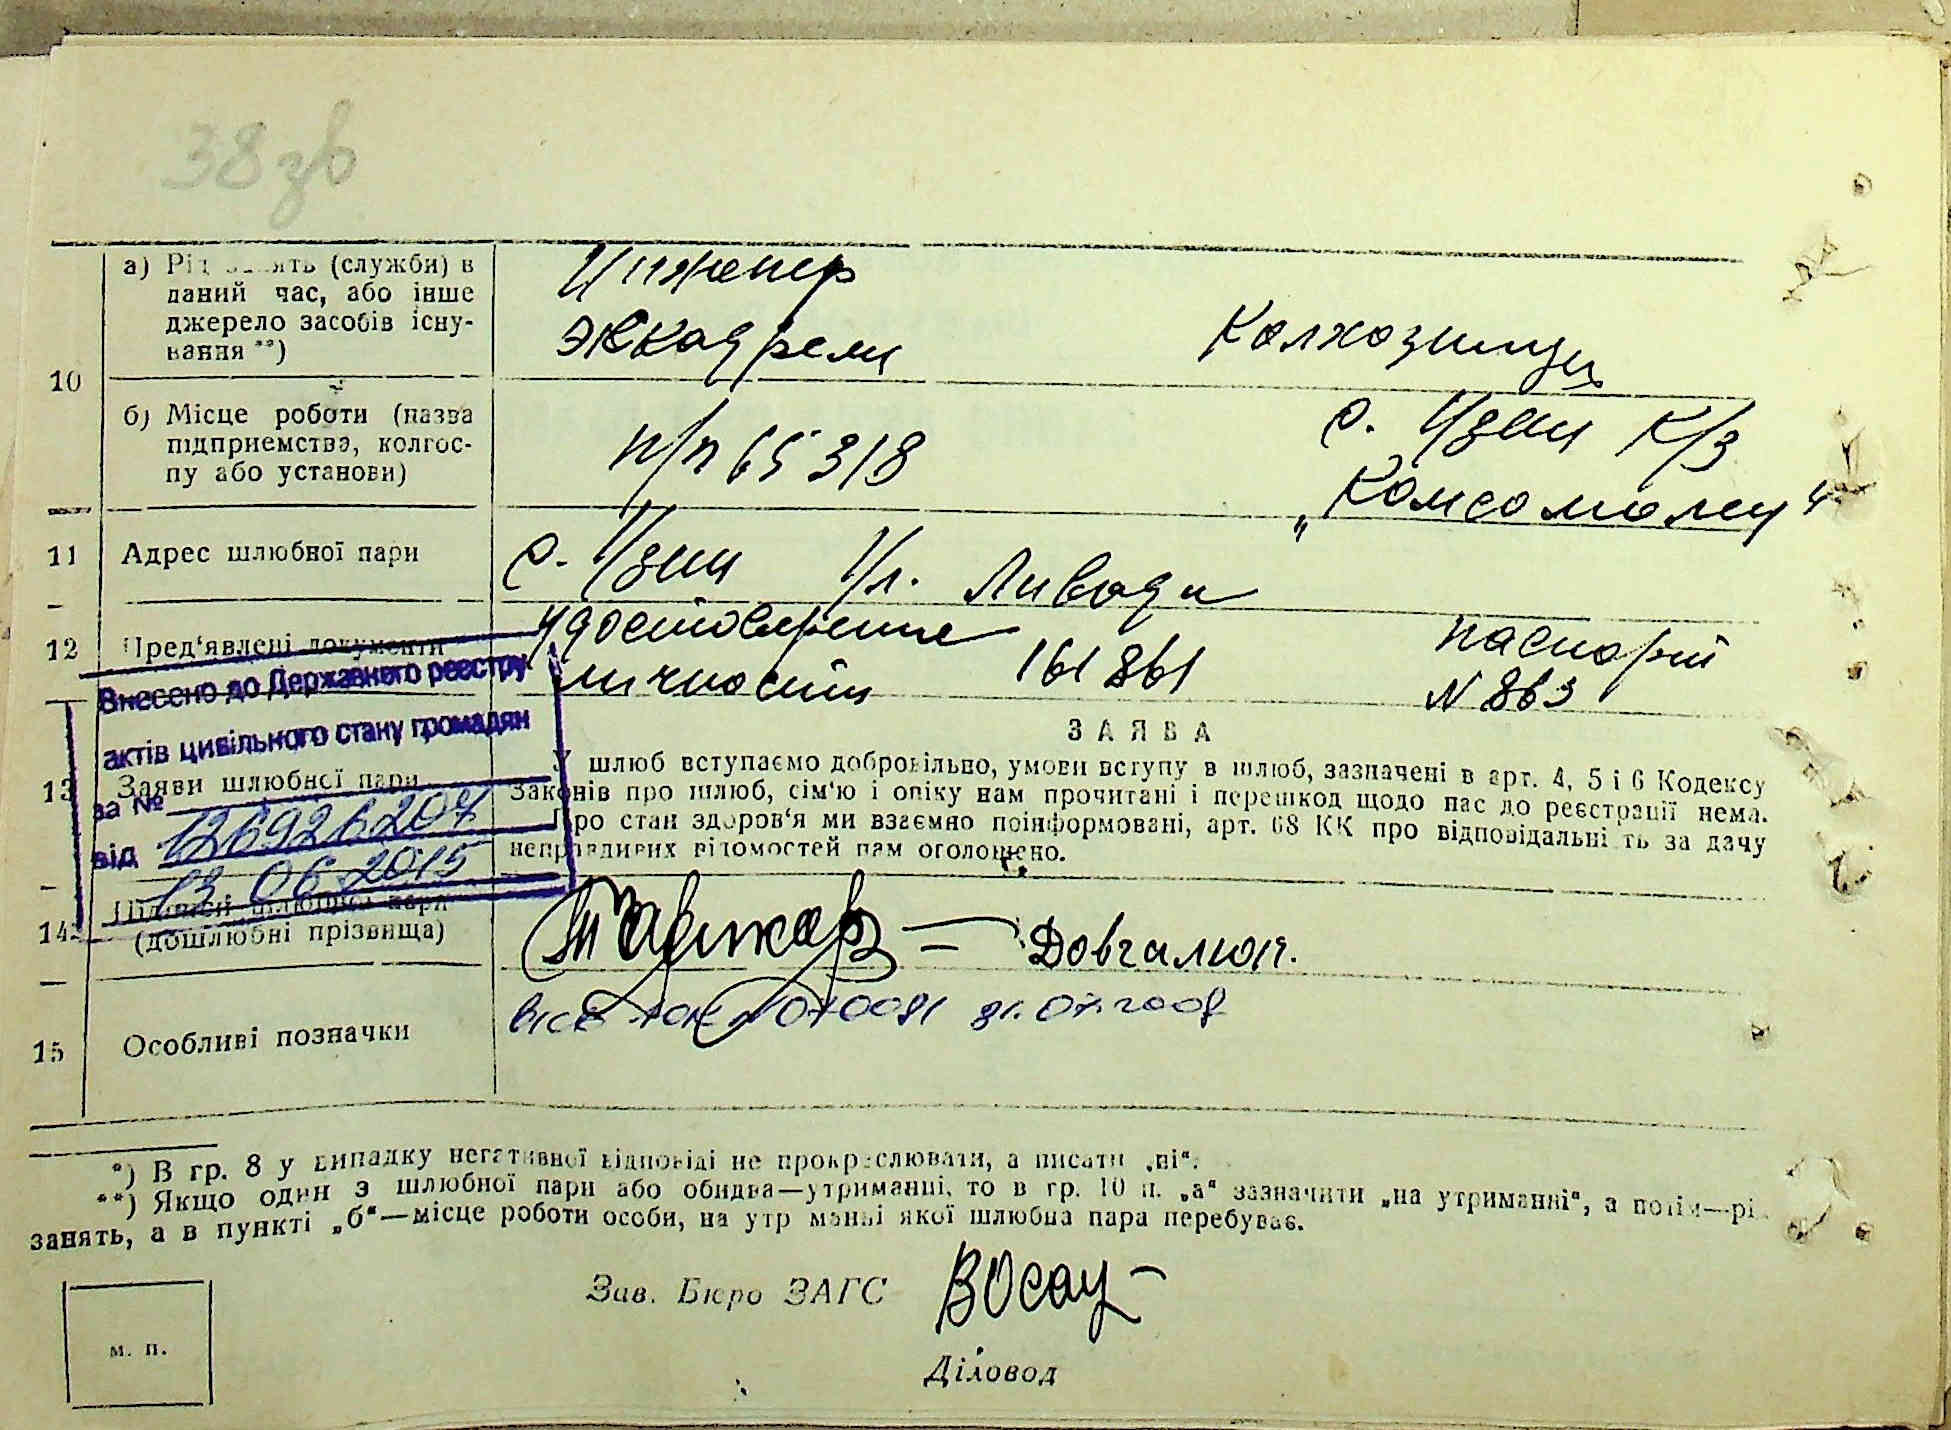 38 зв
а) Рід занять (служби) в
даний час, або інше
джерело засобів існу-
вання **)
Инженер
эскадрели
Колхозница
10
б) Місце роботи (назва
підприємства, колгос-
пу або установи)
п/п 65318
с. Узин К/з
„Комсомолец"
11 Адрес шлюбної пари
с. Узин Ул. Ливади
12 Пред'явлені документи
удостоверение
личности 161861
паспорт
N 863
Внесено до Державного реєстру
актів цивільного стану громадян
за № 126926207
від 13.06.2015
13 Заяви шлюбної пари
ЗАЯВА
У шлюб вступаємо добровільно, умови вступу в шлюб, зазначені в арт. 4, 5 і 6 Кодексу
Законів про шлюб, сім'ю і опіку нам прочитані і перешкод щодо нас до реєстрації нема.
Про стан здоров'я ми взаємно поінформовані, арт. 68 КК про відповідальність за дачу
неправдивих відомостей нам оголошено.
14 Підписи шлюбної пари
(дошлюбні прізвища)
Довгалюк.
15 Особливі позначки
N 070081 31.07.2008
*) В гр. 8 у випадку негативної відповіді не прокреслювати, а писати „ні".
**) Якщо один з шлюбної пари або обидва—утриманці, то в гр. 10 п. „а" зазначити „на утриманні", а потім—рід
занять, а в пункті „б"—місце роботи особи, на утриманні якої шлюбна пара перебуває.
Зав. Бюро ЗАГС
Діловод
м. п.